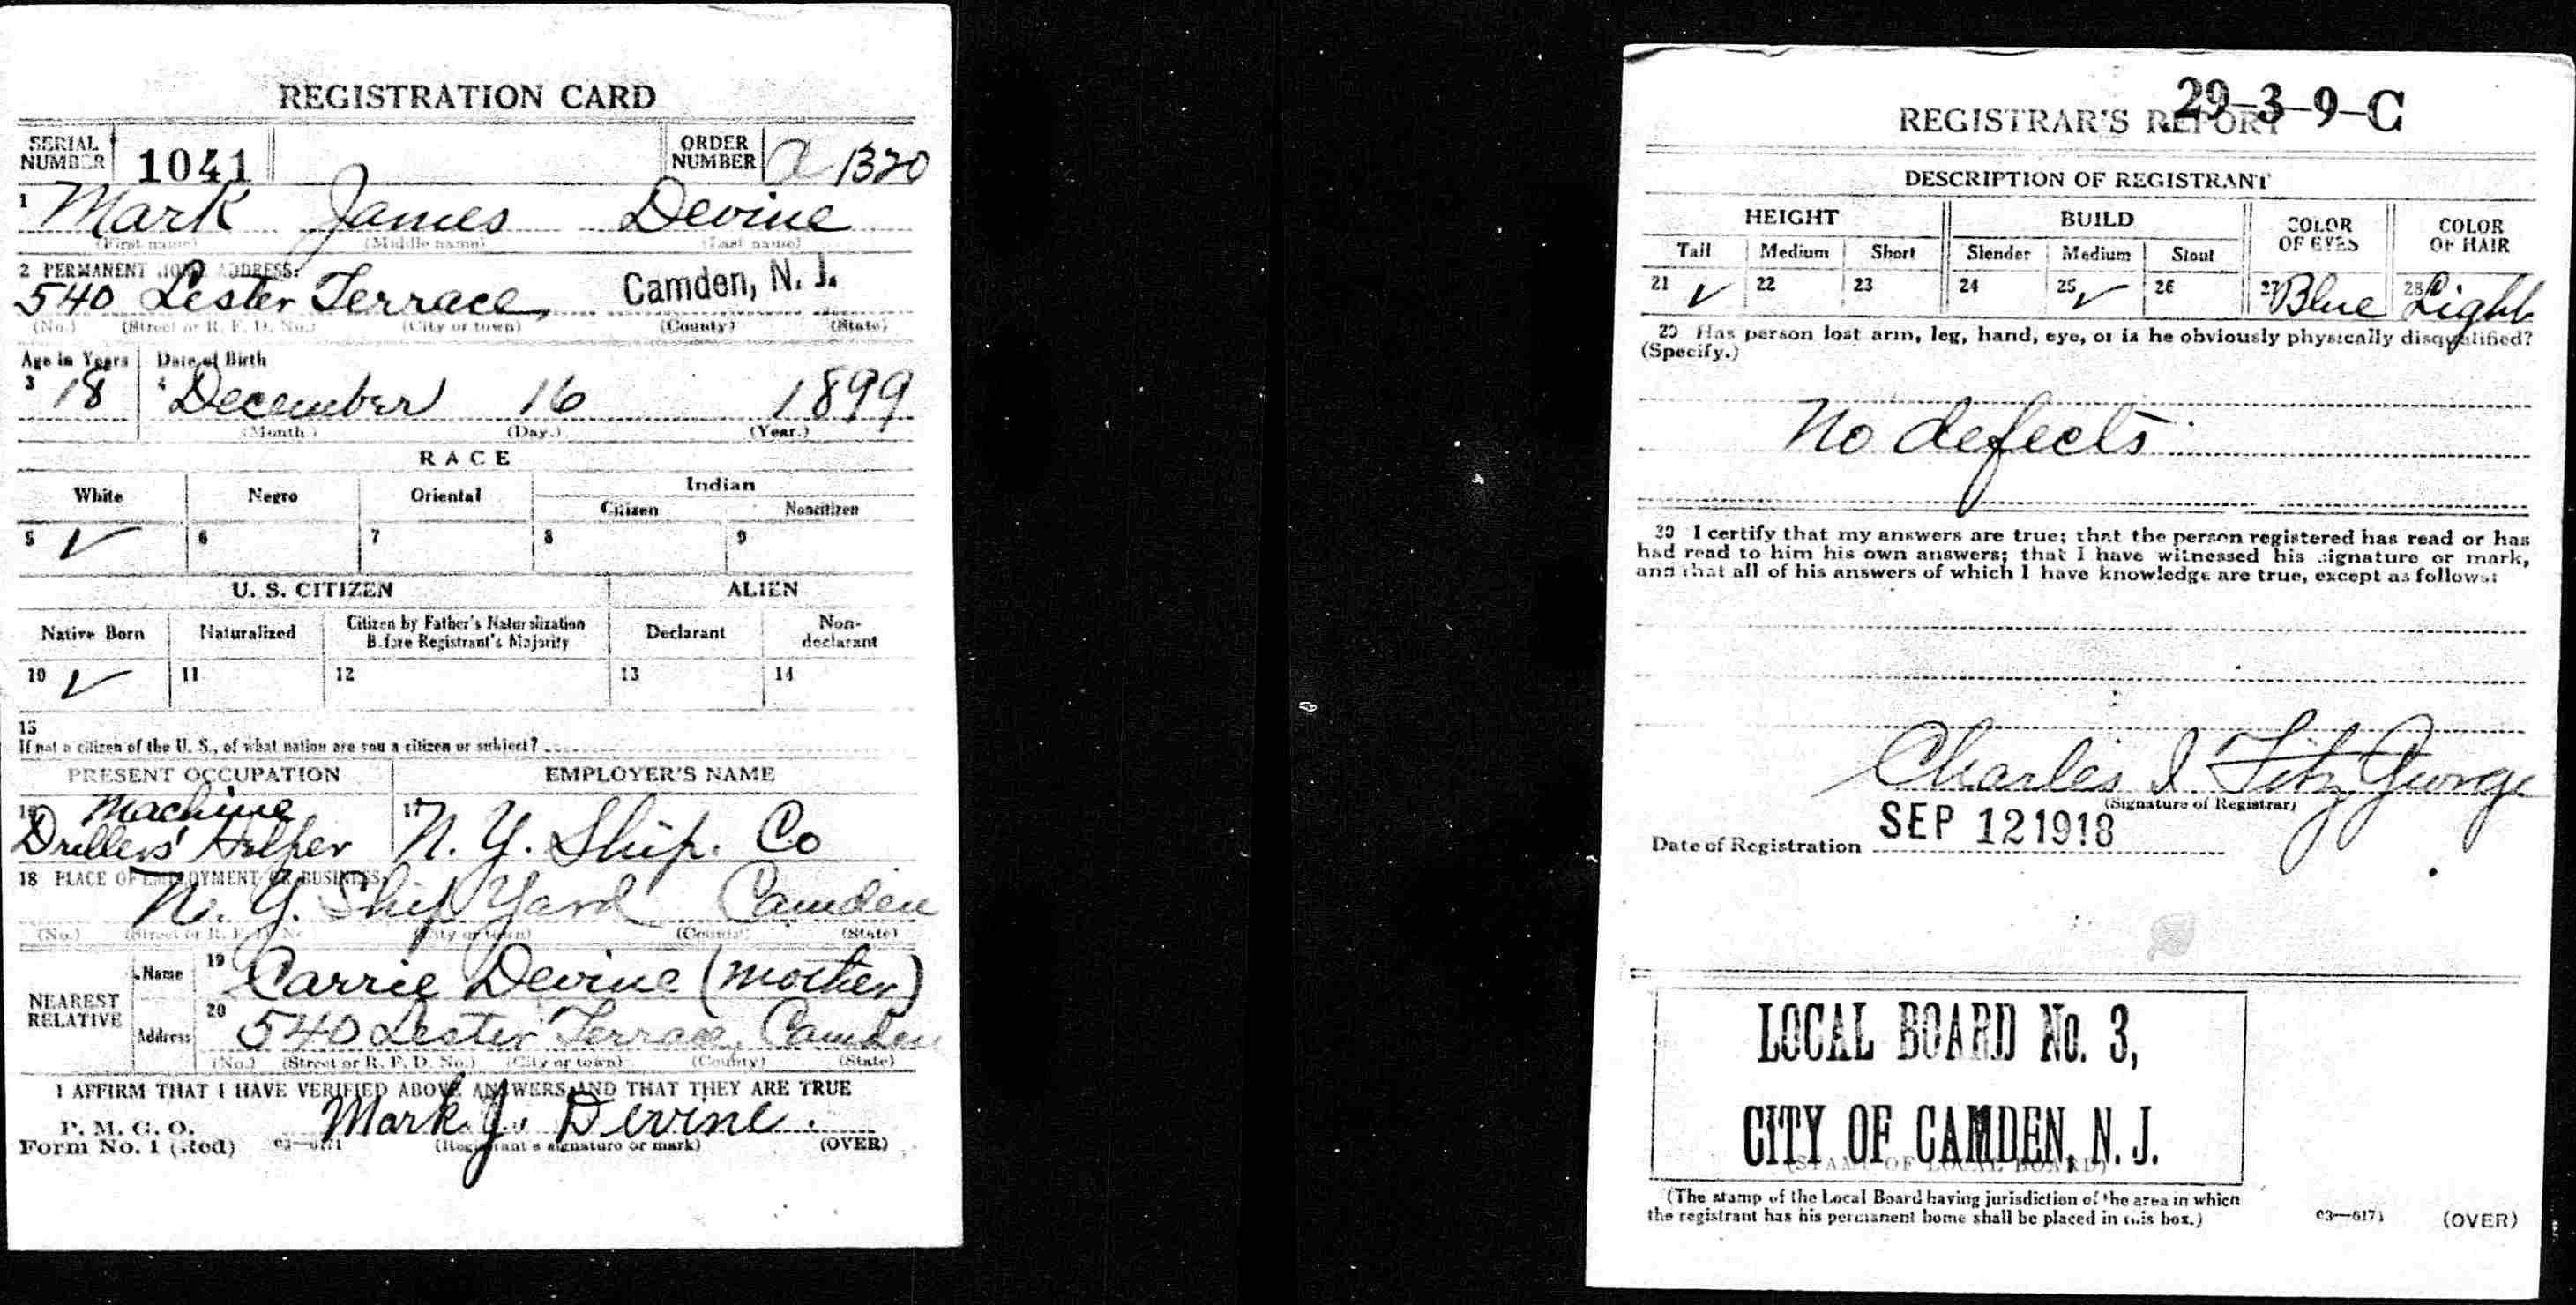 REGISTRATION CARD
SERIAL NUMBER 1041 ORDER NUMBER a 1320
1 Mark James Devine
(First name) (Middle name) (Last name)
2 PERMANENT HOME ADDRESS:
540 Lester Terrace, Camden, N. J.
(No.) (Street or R. F. D. No.) (City or town) (County) (State)
Age in Years Date of Birth
3 18 4 December 16 1899
(Month.) (Day.) (Year.)
RACE
White Negro Oriental Indian
Citizen Noncitizen
5 ✓ 6 7 8 9
U. S. CITIZEN ALIEN
Native Born Naturalized Citizen by Father's Naturalization Before Registrant's Majority Declarant Non-declarant
10 ✓ 11 12 13 14
15
If not a citizen of the U. S., of what nation are you a citizen or subject?
PRESENT OCCUPATION EMPLOYER'S NAME
16 Machine
Drillers' Helper 17 N. Y. Ship. Co
18 PLACE OF EMPLOYMENT OR BUSINESS:
N. Y. Ship Yard Camden
(No.) (Street or R. F. D. No.) (City or town) (County) (State)
NEAREST RELATIVE
Name 19 Carrie Devine (Mother)
Address 20 540 Lester Terrace, Camden
(No.) (Street or R. F. D. No.) (City or town) (County) (State)
I AFFIRM THAT I HAVE VERIFIED ABOVE ANSWERS AND THAT THEY ARE TRUE
P. M. G. O.
Form No. 1 (Red) 03—6171 Mark J. Devine.
(Registrant's signature or mark) (OVER)
29-3-9-C
REGISTRAR'S REPORT
DESCRIPTION OF REGISTRANT
HEIGHT BUILD COLOR OF EYES COLOR OF HAIR
Tall Medium Short Slender Medium Stout
21 ✓ 22 23 24 25 ✓ 26 27 Blue 28 Light
29 Has person lost arm, leg, hand, eye, or is he obviously physically disqualified?
(Specify.)
No defects
30 I certify that my answers are true; that the person registered has read or has
had read to him his own answers; that I have witnessed his signature or mark,
and that all of his answers of which I have knowledge are true, except as follows:
Charles I Fitz George
(Signature of Registrar)
Date of Registration SEP 12 1918
LOCAL BOARD No. 3,
CITY OF CAMDEN, N. J.
(STAMP OF LOCAL BOARD)
(The stamp of the Local Board having jurisdiction of the area in which
the registrant has his permanent home shall be placed in this box.)
03—6171 (OVER)